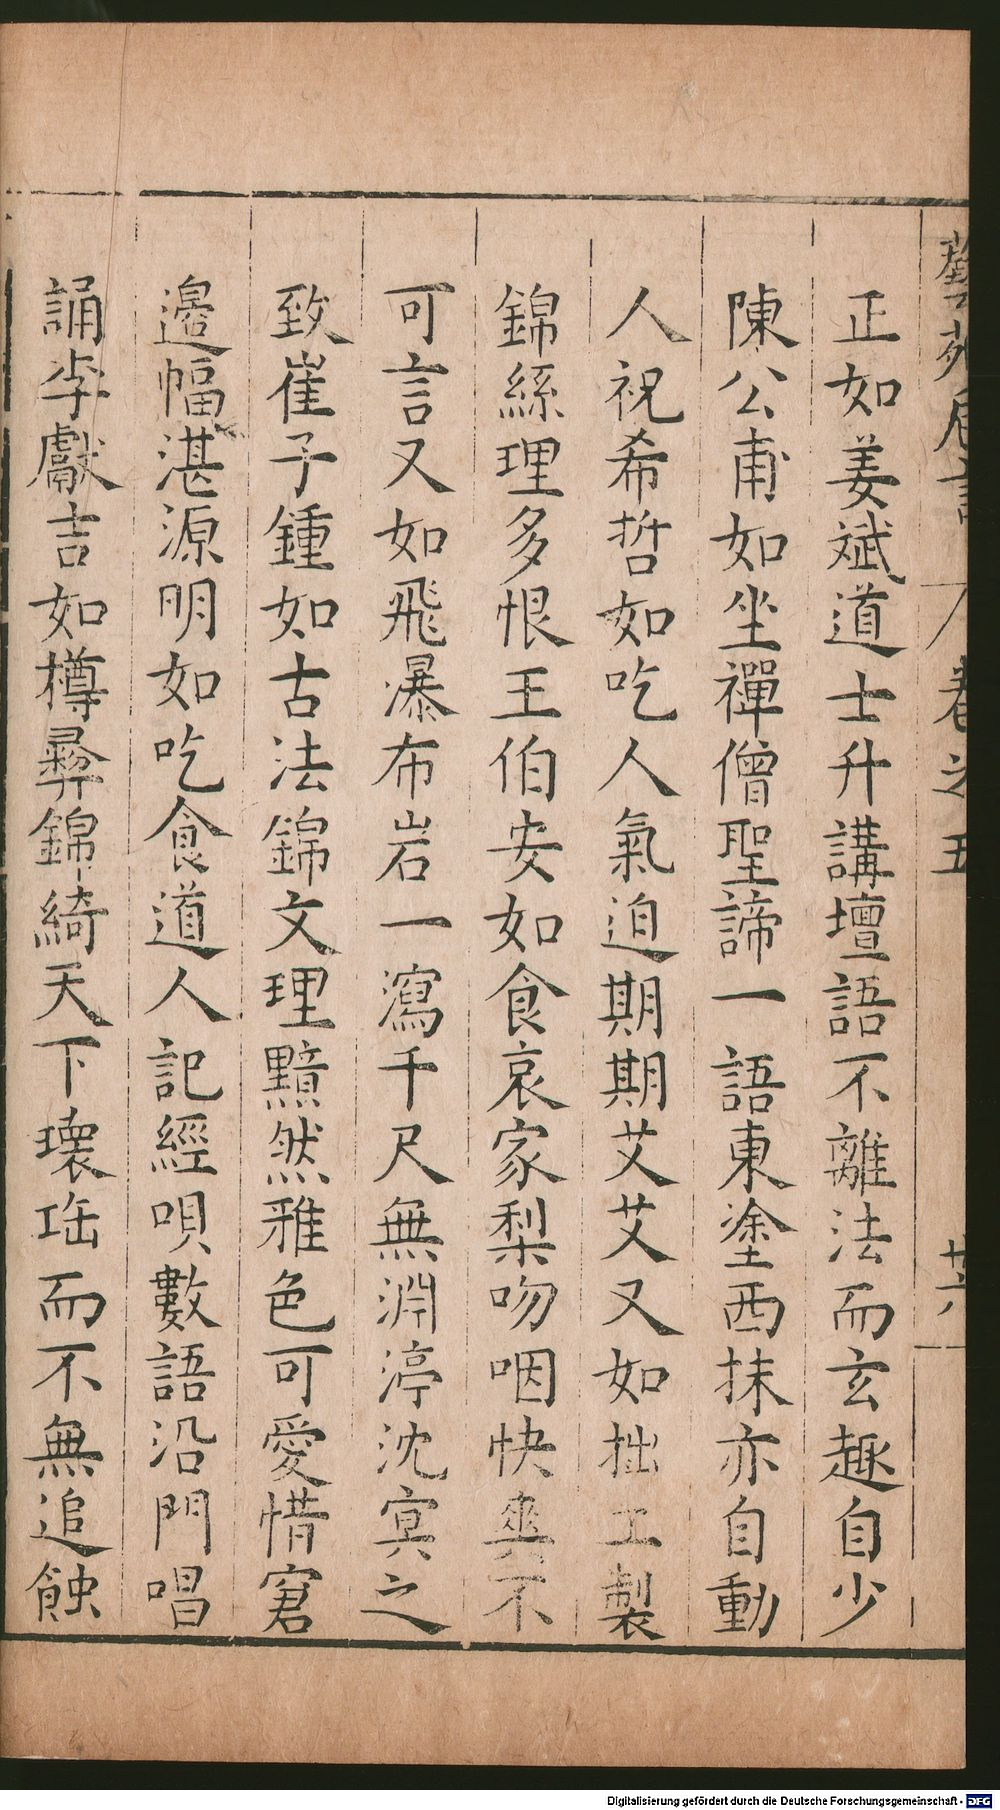 藝苑卮言 卷之五 廿六
正如姜斌道士升講壇語不離法而玄趣自少
陳公甫如坐禪僧聖諦一語東塗西抹亦自動
人祝希哲如吃人氣迫期期艾艾又如拙工製
錦絲理多恨王伯安如食哀家梨吻咽快爽不
可言又如飛瀑布岩一瀉千尺無淵渟沈冥之
致崔子鍾如古法錦文理黯然雅色可愛惜窘
邊幅湛源明如吃食道人記經唄數語沿門唱
誦李獻吉如樽彝錦綺天下瓌珤而不無追蝕
Digitalisierung gefördert durch die Deutsche Forschungsgemeinschaft - DFG